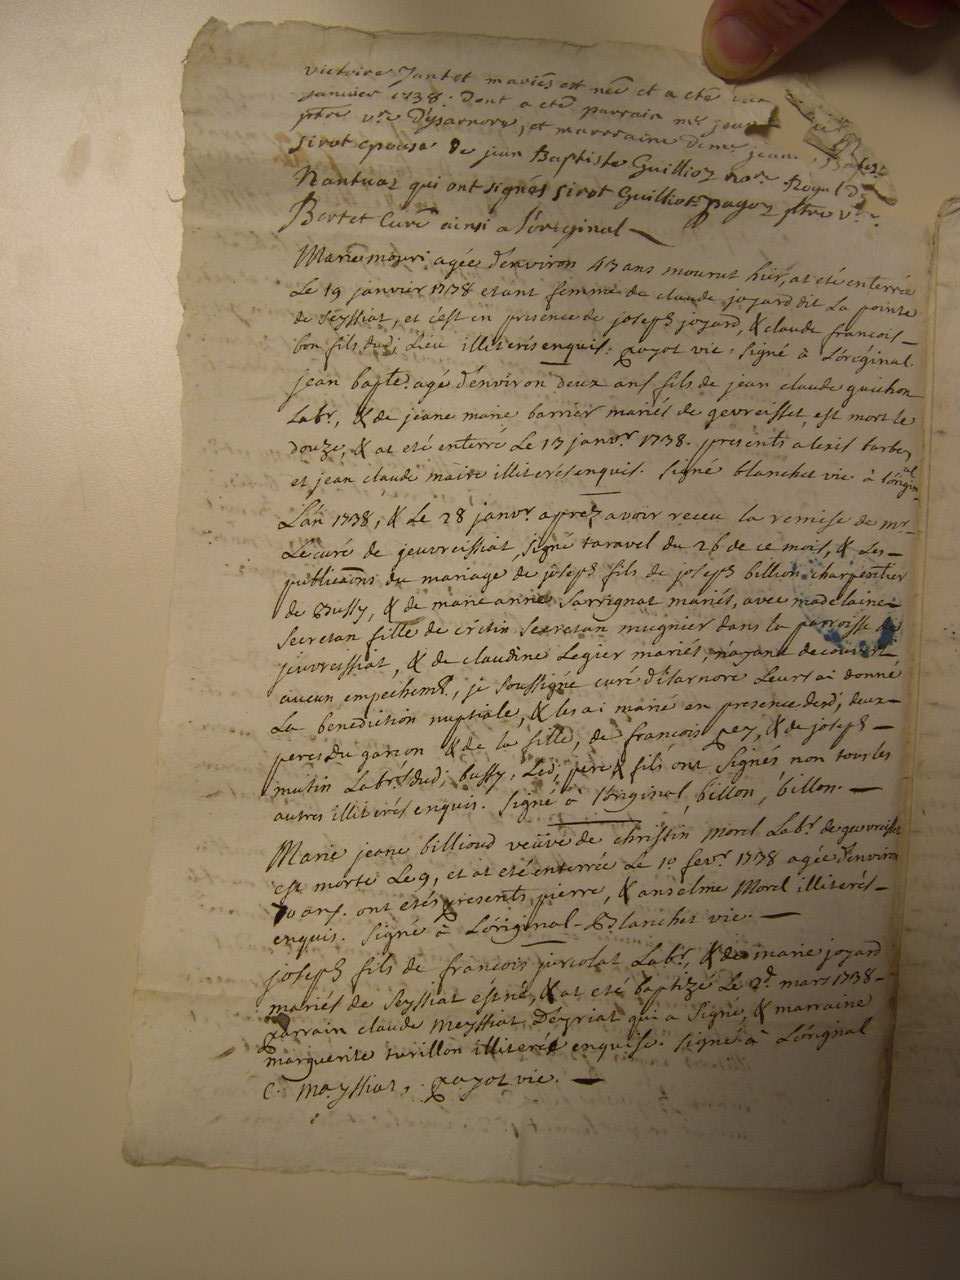 victoire Jantet mariés est née et a été
janvier 1738. dont a été parrain mr jean
ptre vre d'ysarnore, et marraine dme jeane
sirot epouse de jean Baptiste Guilliot nore Royal
Nantuat qui ont signés sirot Guilliot payot ptre vre
Bertet Curé ainsi a l'original
Marie mouri agée d'environ 43 ans mourut hier, at eté enterrée
Le 19 janvier 1738 etant femme de claude joyard dit La pointe
de Seyssiat, et c'est en presence de joseph joyard, & claude francois
bon fils dud; Lieu illiterés enquis. payot vic. signé à Loréginal.
jean bapte agé d'énviron deux ans fils de jean claude guichon
Labr, & de jeane marie barrier mariés de gevreisset, est mort le
douze, & at eté enterré Le 13 janvr 1738. presents alexis
et jean claude maire illiterés enquis. signé blanchet vic à Lorigin al
L'an 1738, & Le 28 janvr aprez avoir receu la remise de mr
Le curé de jeuvreissiat, signé taravel du 26 de ce mois, & Les
publicaons du mariage de joseph fils de joseph billion charpentier
de Bussy, & de marie anne Sarrignat mariés, avec madelaine
Secretan fille de crétin Secretan mugnier dans la parroisse de
jeuvreissiat, & de claudine Legier mariés, n'ayant decouvert
aucun empechemt, je soussigné curé d'isarnore Leurs ai donné
La benediction nuptiale, & les ai marié en presence desd; deux
peres du garçon & de la fille, de françois rey, & de joseph
mutin Labrs dud; bussy, Led; pere & fils ont signés non tous les
autres illiterés enquis. Signé à l'original, billon, billon.
Marie jeane billioud veuve de christin morel Labr de gevreisset
est morte Le 9, et at eté enterrée Le 10 fevr 1738 agée d'environ
70 ans. ont etés presents pierre, & anselme Morel illiterés
enquis. Signé à Lóriginal Blanchet vic.
joseph fils de francois juvolat Labr, & de marie joyard
mariés de Seyssiat est né, & at eté baptizé Le 2d mars 1738
parrain claude Meyssiat d'éyriat qui a Signé, & marraine
marguerite turillon illiterée enquise. signé à Lórignal
C. mayssiat, payot vic.